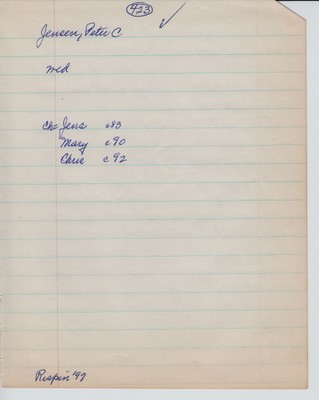 423 ✓
Jensen, Peter C
md
Ch= Jens c83
Mary c90
Chris c92
Rispin '97